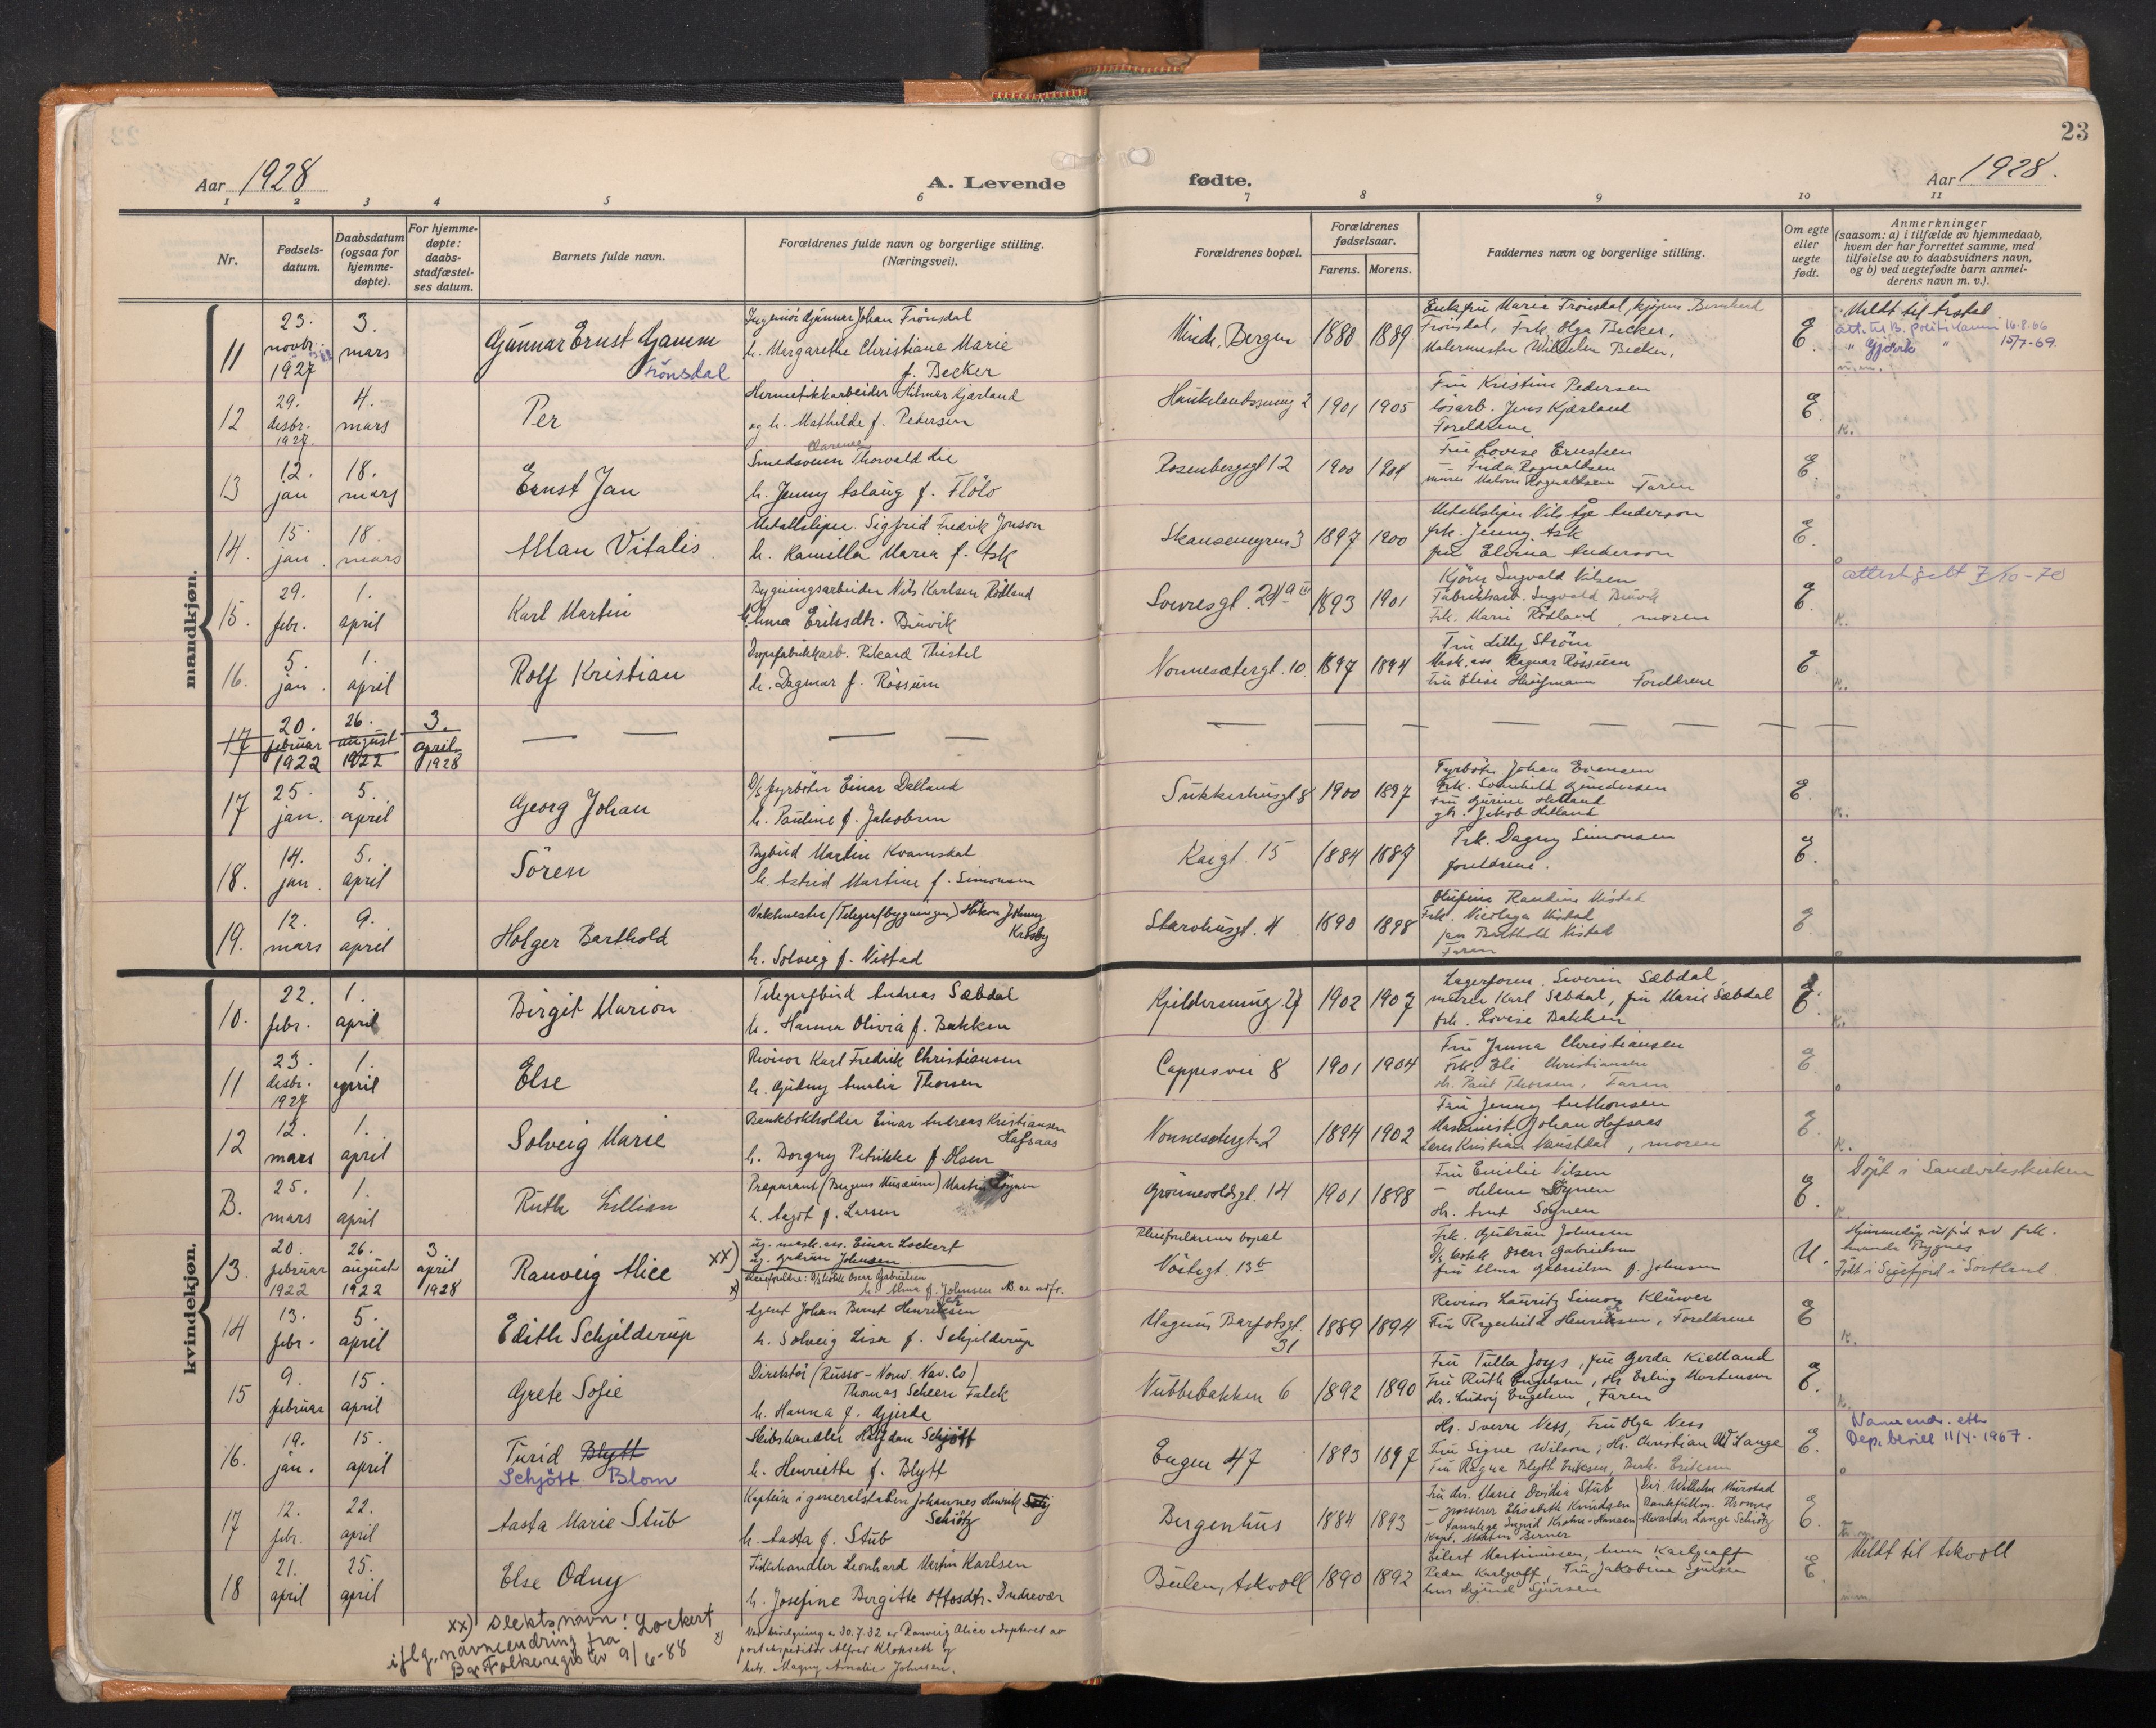 23
Aar 1928
A. Levende
fødte.
Aar 1928.
1 2 3 4 5 6 7 8 9 10 11
Nr.
Fødsels-
datum.
Daabsdatum
(ogsaa for
hjemme-
døpte).
For hjemme-
døpte:
daabs-
stadfæstel-
ses datum.
Barnets fulde navn.
Forældrenes fulde navn og borgerlige stilling.
(Næringsvei).
Forældrenes bopæl.
Forældrenes
fødselsaar.
Farens. Morens.
Faddernes navn og borgerlige stilling.
Om egte
eller
uegte
født.
Anmerkninger
(saasom: a) i tilfælde av hjemmedaab,
hvem der har forrettet samme, med
tilføielse av to daabsvidners navn,
og b) ved uegtefødte barn anmel-
derens navn m. v.).
mandkjøn.
11
23.
novbr.
1927
3.
mars
Gunnar Ernst Gamm
Frönsdal
Ingeniör Gunnar Johan Frönsdal
h. Margarethe Christiane Marie
f. Becker
Minde, Bergen 1880 1889
Enkefru Marie Frönsdal, kjöpm. Bernhard
Frönsdal, Frk. Olga Becker,
Malermester Wilhelm Becker.
E.
Meldt til Årstad.
att. til B. politikamm 16.8.66
" Gjövik " 15/7-69.
12
29.
desbr.
1927.
4.
mars
Per
Hermetikkarbeider Hilmar Kjærland
og h. Mathilde f. Pedersen
Haukelandsveien 2 1901 1905
Fru Kristine Pedersen
lösarb. Jens Kjærland
Foreldrene
E.
K.
13
12.
jan
18.
mars
Ernst Jan
Clarence
Smedsvenn Thorvald Lie
h. Jenny Aslaug f. Flölo
Rosenberggt 12 1900 1904
Fru Lovise Erntsen
— Frida Rognaldsen
Faren
E.
14.
15.
jan.
18.
mars
Allan Vitalis
Metallsliper Sigfrid Fredrik Jonson
h. Kamilla Maria f. Ask
Skansemyren 3 1897 1900
Metallsliper Nils Åge Anderson
frk. Jenny Ask
fru Elina Anderson
E.
15.
29.
febr.
1.
april
Karl Martin
Bygningsarbeider Nils Karlsen Rödland
h. Anna Eriksdtr. Birvik
Sverresgt. 24 a III 1893 1901
Kjörer Ingvald Nilsen
Fabrikkarb. Ingvald Birvik
Frk. Marie Rödland, moren
E.
K.
attest gitt 7/10-70
16.
5.
jan.
1.
april
Rolf Kristian
Dropsfabrikkarb. Rikard Thistel
h. Dagmar f. Rossum
Nonnesætergt. 10. 1897 1894
Fru Lilly Ström
Mask. ass Ragnar Rössum
Fru Elise Haugmann Foreldrene
E
K.
17
20.
februar
1922
26.
august
1922
3.
april
1928
17
25.
jan.
5.
april
Georg Johan
D/s fyrböter Einar Dalland
h. Pauline f. Jakobsen
Sukkerhusgt 8 1900 1897
Fyrböter Johan Evensen
Frk. Svanhild Gundersen
Fru Gurine Helland
gr. Jakob Helland
E.
K.
18.
14.
jan.
5.
april
Sören
Bybud Martin Kvamsdal
h. Astrid Martine f. Simonsen
Kaigt. 15 1884 1887
Frk. Dagny Simonsen
foreldrene.
E.
19.
12.
mars
9.
april
Holger Barthold
Vaktmester (Telegrafbygningen) Håkon Johnny
Krosby
h. Solveig f. Vistad
Starvhusgt. 4 1890 1898
Frk. Nicolaya Vistad
Jan Barthold Vistad
Faren
E
kvindekjøn.
10.
22.
febr.
1.
april
Birgit Marion
Telegrafbud Andreas Sæbdal
h. Hanna Olivia f. Bakken
1902 1907
Lagerform. Severin Sæbdal,
murer Karl Sæbdal, fru Marie Sæbdal
frk. Lovise Bakken
E.
K.
11
23.
desbr.
1927
1.
april
Else
Revisor Karl Fredrik Christiansen
h. Gudny Amalie Thorsen
Cappesvei 8 1901 1904
Fru Jenna Christiansen
Frk. Eli Christiansen
Hr. Paul Thorsen, Faren
E.
12
12.
mars
1.
april
Solveig Marie
Bankbokholder Einar Andreas Kristiansen
Hafsaas
h. Borgny Petrikke f. Olsen
Nonnesetergt. 2 1894 1902
Fru Jenny Anthonsen
Maskinist Johan Hafsaas
Lærer Kristian Naustdal, moren
E.
K.
B.
25.
mars
1.
april
Ruth Lillian
Preparant (Bergens Museum) Martin Sognen
h. Aagot f. Larsen
Grönnevoldsgt. 14 1901 1898
Fru Emilie Nilsen
— Helene Sognen
Hr. Arnt Sognen
E.
Döpt i Sandvikskirken
13.
20.
februar
1922
26.
august
1922
3.
april
1928
Ranveig Alice
xx) ug. mask.ass. Einar Lockert
ug. Gudrun Johnsen
Pleieforeldre: D/s kokk Oscar Gabrielsen
x) h. Alma f. Johnsen
Pleieforeldrenes bopæl
Nöstegt. 13 b
Frk. Gudrun Johnsen
D/s kokk Oscar Gabrielsen
fru Alma Gabrielsen f. Johnsen
U.
Hjemmedåp utfört av frk.
Amanda Bygnes
Född i Sigefjord i Sortland.
14
13.
febr.
5.
april
Edith Schjelderup
Agent Johan Bernt Henriksen
h. Solveig Lisa f. Schjelderup
Magnus Barfotsgt.
31
1889 1894
Revisor Lauritz Simon Klüwer
Fru Ragnhild Henriksen, Foreldrene
E
K.
15
9.
februar
15.
april
Grete Sofie
Direktör (Russo-Norw. Nav. Co)
Thomas Scheen Falck
h. Hanna f. Gjerde
Nubbebakken 6 1892 1890
Fru Tulla Joys, fru Gerda Kielland
Fru Ruth Engelsen, Hr Erling Mortensen
Hr. Ludvig Engelsen, Faren
E.
K.
16.
19.
jan.
15.
april
Turid Blytt
Schjött Blom
Skibshandler Halfdan Schjött
h. Henriette f. Blytt
Engen 47 1893 1897
Hr. Sverre Ness, Fru Olga Ness
Fru Signe Wilson, Hr. Christian Lange
Fru Ragna Blytt Eriksen, Birk. Eriksen
E.
Navneendr. etter
Dep. bevill 11/4-1967.
17
12.
febr.
22.
april
Aasta Marie Stub
Kaptein i generalstaben Johannes Henrik
Schiötz
h. Aasta f. Stub
Bergenhus 1884 1893
Fru dir. Marie Ovidia Stub
Dir. Wilhelm Mürstad
— grosserer Elisabeth Knudsen
— Tannlege Ingrid Krohn-Hansen
Alexander Lange Schiötz
Kapt. Martin Berner
E.
18
21.
april
25.
april
Else Odny
Fiskehandler Leonhard Martin Karlsen
h. Josefine Birgitte Ottosdtr. Indrevær
Bulen, Askvoll 1890 1892
Eilert Martinussen, Anna Karlgraff
Peder Karlgraff, Fru Jakobine Sjursen
E
Meldt til Askvoll
xx) Slektsnavn: Lockert
iflg. navneendring fra
Bg. Folkeregister 9/6-88
x) Ved bevilgning av 30.7.32 er Ranveig Alice adoptert av
postekspeditör Alfred Klokseth og
hstr. Magny Amalie Johnsen.